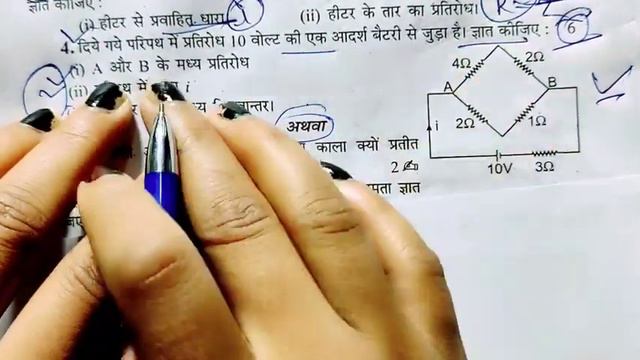 ज्ञात कीजिए :
(i) हीटर से प्रवाहित धारा (ii) हीटर के तार का प्रतिरोध।
4. दिये गये परिपथ में प्रतिरोध 10 वोल्ट की एक आदर्श बैटरी से जुड़ा है। ज्ञात कीजिए : 6
(i) A और B के मध्य प्रतिरोध
(ii) में i
अथवा
काला क्यों प्रतीत
2
ज्ञात
4Ω 2Ω
A B
2Ω 1Ω
i
10V 3Ω